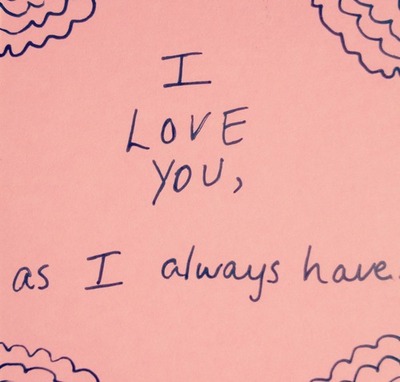 I
LOVE
YOU,
as I always have.